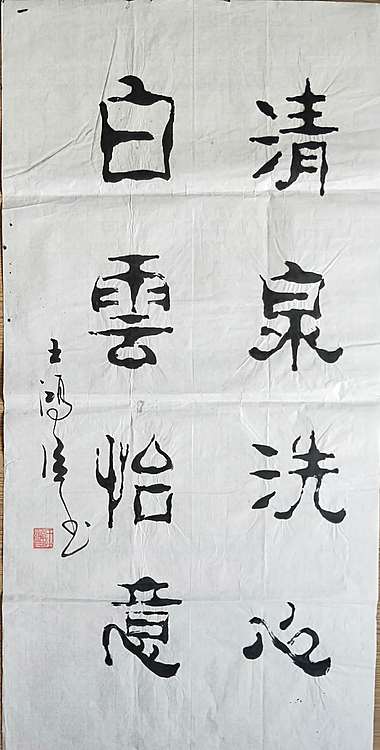 清泉洗心
白雲怡意
王鴻